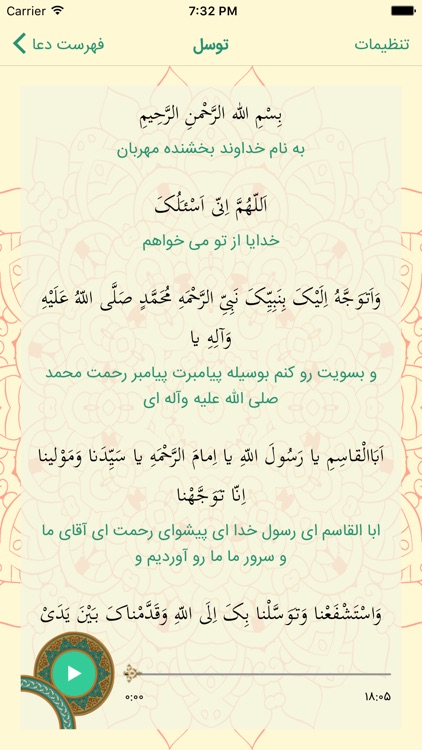 Carrier 7:32 PM
تنظیمات توسل فهرست دعا
بِسْمِ الله الرَّحْمنِ الرَّحِیمِ
به نام خداوند بخشنده مهربان
اَللّهُمَّ اِنّی اَسْئَلُکَ
خدایا از تو می خواهم
وَاَتَوَجَّهُ اِلَیْکَ بِنَبِیِّکَ نَبِیِّ الرَّحْمَهِ مُحَمَّدٍ صَلَّی اللّهُ عَلَیْهِ
وَآلِهِ یا
و بسویت رو کنم بوسیله پیامبرت پیامبر رحمت محمد
صلی الله علیه وآله ای
اَبَاالْقاسِمِ یا رَسُولَ اللّهِ یا اِمامَ الرَّحْمَهِ یا سَیِّدَنا وَمَوْلینا
اِنّا تَوَجَّهْنا
ابا القاسم ای رسول خدا ای پیشوای رحمت ای آقای ما
و سرور ما ما رو آوردیم و
وَاسْتَشْفَعْنا وَتَوَسَّلْنا بِکَ اِلَی اللّهِ وَقَدَّمْناکَ بَیْنَ یَدَیْ
۰:۰۰ ۱۸:۰۵